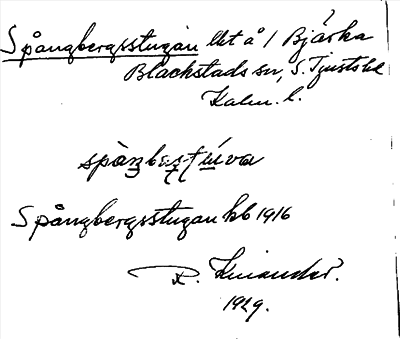 Spångbergsstugan lht å 1 Bjärka
Blackstads sn, S. Tjusts hd
Kalm. l.
Spångbergsstugan kb 1916
R.
1929.